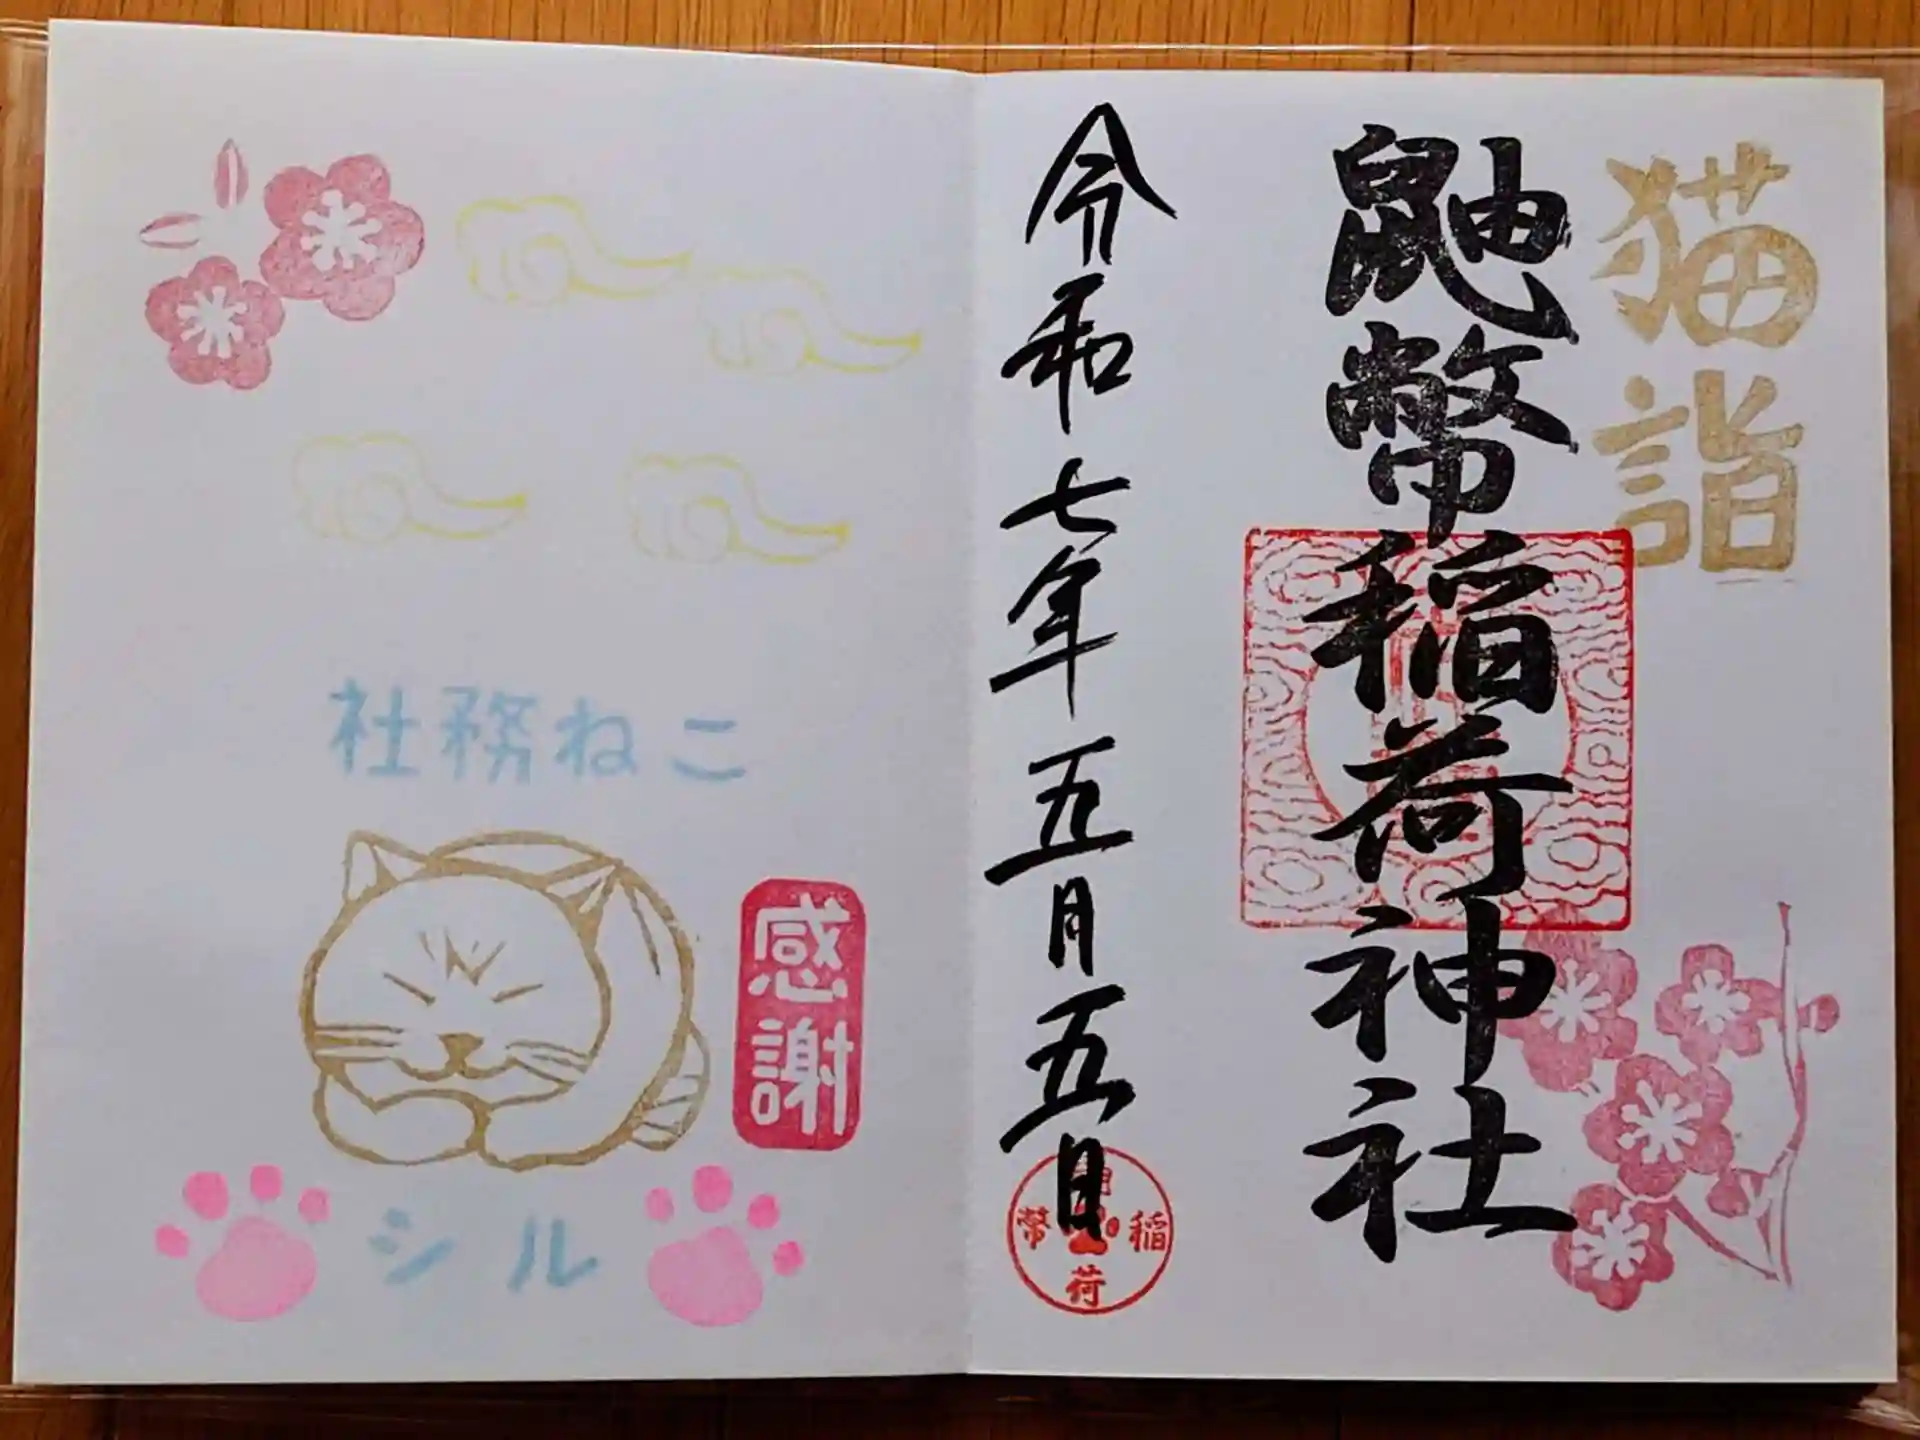 猫詣
鼬幣稲荷神社
令和七年五月五日
幣稲荷
社務ねこ
感謝
シル